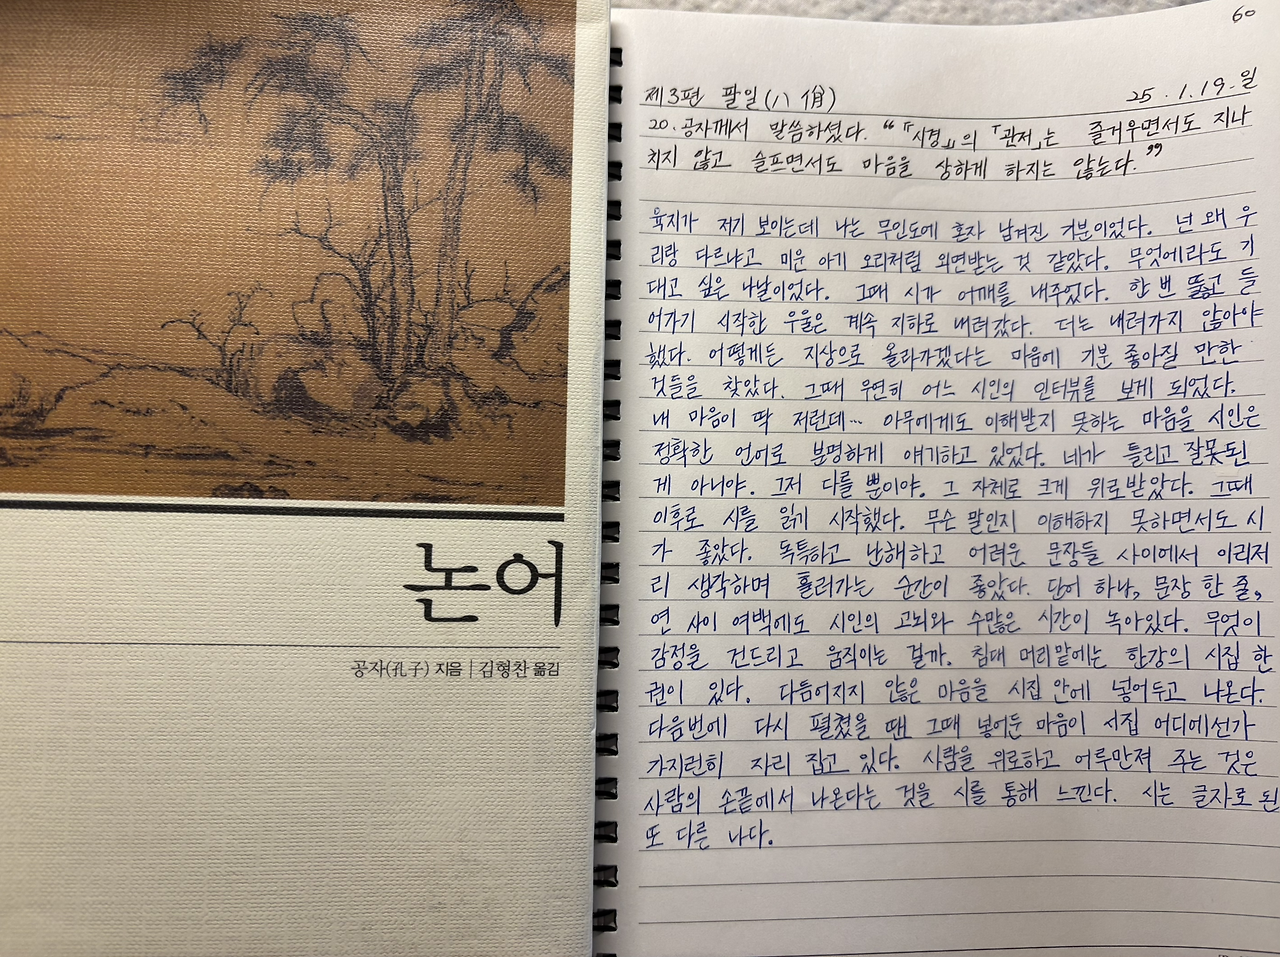 논어
공자(孔子) 지음 | 김형찬 옮김
60
제3편 팔일(八佾) 25.1.19.일
20. 공자께서 말씀하셨다. "『시경』의 「관저」는 즐거우면서도 지나
치지 않고 슬프면서도 마음을 상하게 하지는 않는다."
육지가 저기 보이는데 나는 무인도에 혼자 남겨진 기분이었다. 넌 왜 우
리랑 다르냐고 미운 아기 오리처럼 외면받는 것 같았다. 무엇에라도 기
대고 싶은 나날이었다. 그때 시가 어깨를 내주었다. 한 번 뚫고 들
어가기 시작한 우울은 계속 지하로 내려갔다. 더는 내려가지 않아야
했다. 어떻게든 지상으로 올라가겠다는 마음에 기분 좋아질 만한
것들을 찾았다. 그때 우연히 어느 시인의 인터뷰를 보게 되었다.
내 마음이 딱 저런데… 아무에게도 이해받지 못하는 마음을 시인은
정확한 언어로 분명하게 얘기하고 있었다. 네가 틀리고 잘못된
게 아니야. 그저 다를 뿐이야. 그 자체로 크게 위로받았다. 그때
이후로 시를 읽기 시작했다. 무슨 말인지 이해하지 못하면서도 시
가 좋았다. 독특하고 난해하고 어려운 문장들 사이에서 이리저
리 생각하며 흘러가는 순간이 좋았다. 단어 하나, 문장 한 줄,
연 사이 여백에도 시인의 고뇌와 수많은 시간이 녹아있다. 무엇이
감정을 건드리고 움직이는 걸까. 침대 머리맡에는 한강의 시집 한
권이 있다. 다듬어지지 않은 마음을 시집 안에 넣어두고 나온다.
다음번에 다시 펼쳤을 땐 그때 넣어둔 마음이 시집 어디에선가
가지런히 자리 잡고 있다. 사람을 위로하고 어루만져 주는 것은
사람의 손끝에서 나온다는 것을 시를 통해 느낀다. 시는 글자로 된
또 다른 나다.